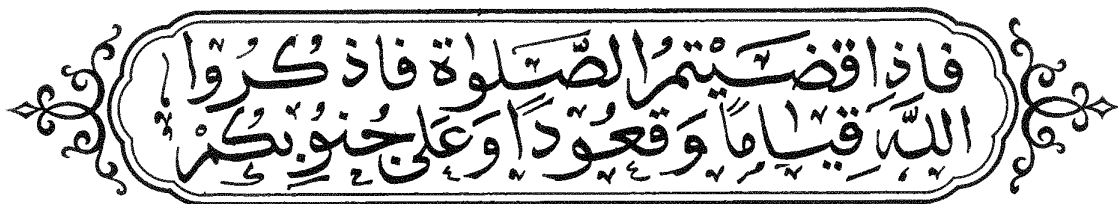 فَاِذَا قَضَيْتُمُ الصَّلٰوةَ فَاذْكُرُوا
اللّٰهَ قِيَامًا وَقُعُوْدًا وَعَلٰى جُنُوْبِكُمْ